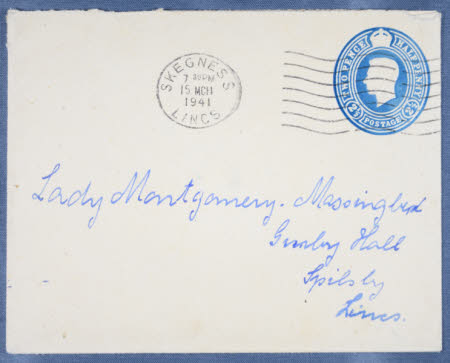 SKEGNESS
7 PM
15 MCH
1941
LINCS
TWO PENCE HALF PENNY
2½ POSTAGE 2½
Lady Montgomery-Massingberd
Gunby Hall
Spilsby
Lincs.